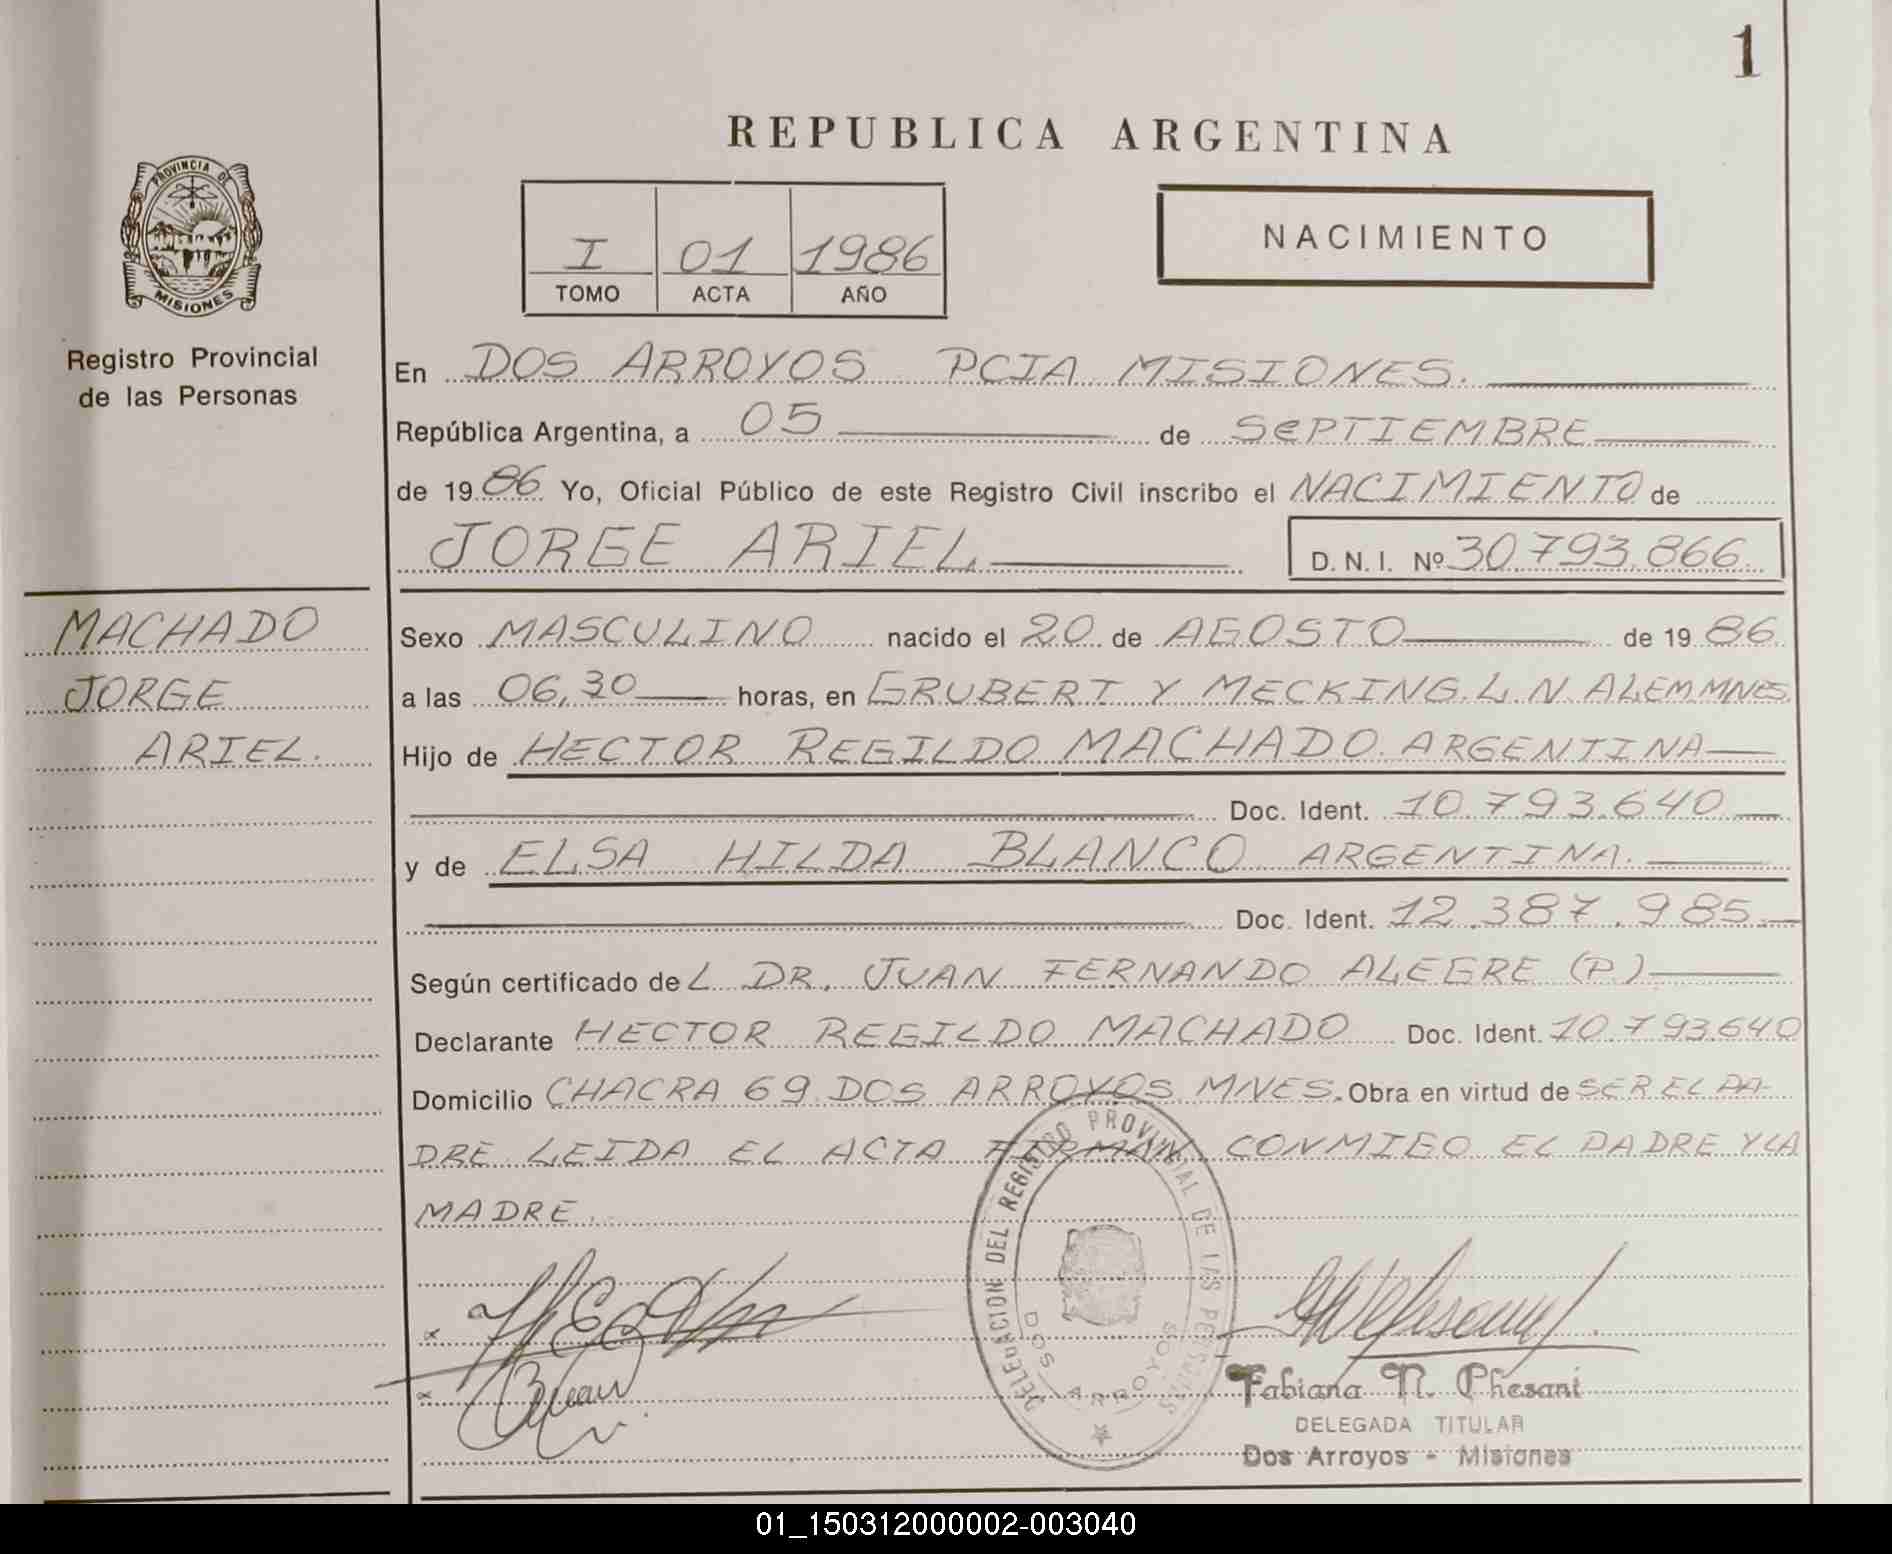 1
REPUBLICA ARGENTINA
PROVINCIA DE
MISIONES
Registro Provincial
de las Personas
I 01 1986
TOMO ACTA AÑO
NACIMIENTO
En DOS ARROYOS PCIA MISIONES.
República Argentina, a 05 de SEPTIEMBRE
de 19 86 Yo, Oficial Público de este Registro Civil inscribo el NACIMIENTO de
JORGE ARIEL D. N. I. Nº 30.793.866
MACHADO
JORGE
ARIEL.
Sexo MASCULINO nacido el 20 de AGOSTO de 19 86
a las 06,30 horas, en GRUBERT Y MECKING.L.N.ALEM MNES.
Hijo de HECTOR REGILDO MACHADO. ARGENTINA
Doc. Ident. 10.793.640
y de ELSA HILDA BLANCO ARGENTINA.
Doc. Ident. 12.387.985
Según certificado de L DR. JUAN FERNANDO ALEGRE (P.)
Declarante HECTOR REGILDO MACHADO Doc. Ident. 10.793.640
Domicilio CHACRA 69 DOS ARROYOS MNES. Obra en virtud de SER EL PA-
DRE LEIDA EL ACTA FIRMAN CONMIGO EL PADRE Y LA
MADRE.
DELEGACION DEL REGISTRO PROVINCIAL DE LAS PERSONAS
DOS ARROYOS
x
x
Fabiana N. Chesani
DELEGADA TITULAR
Dos Arroyos - Misiones
01_150312000002-003040